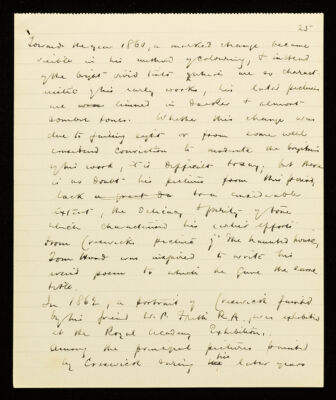 25
Toward the year 1860, a marked change became
visible in his method of colouring, & instead
of the bright vivid tints which are so charact
eristic of his early works, his later pictures
are limned in darker & almost
sombre tones. Whether this change was
due to failing sight or from some well
considered conviction to moderate the brightness
of his work, it is difficult to say; but there
is no doubt his pictures from this period
lack a great de to a considerable
extent, the delicacy & purity of tone
which characterised his earlier efforts
From Creswick's picture of "The Haunted House,"
Tom Hood was inspired to write his
weird poem to which he gave the same
title.
In 1862, a portrait of Creswick painted
by his friend W. P. Frith R.A., was exhibited
at the Royal Academy Exhibition.
Among the principal pictures painted
by Creswick during his later years